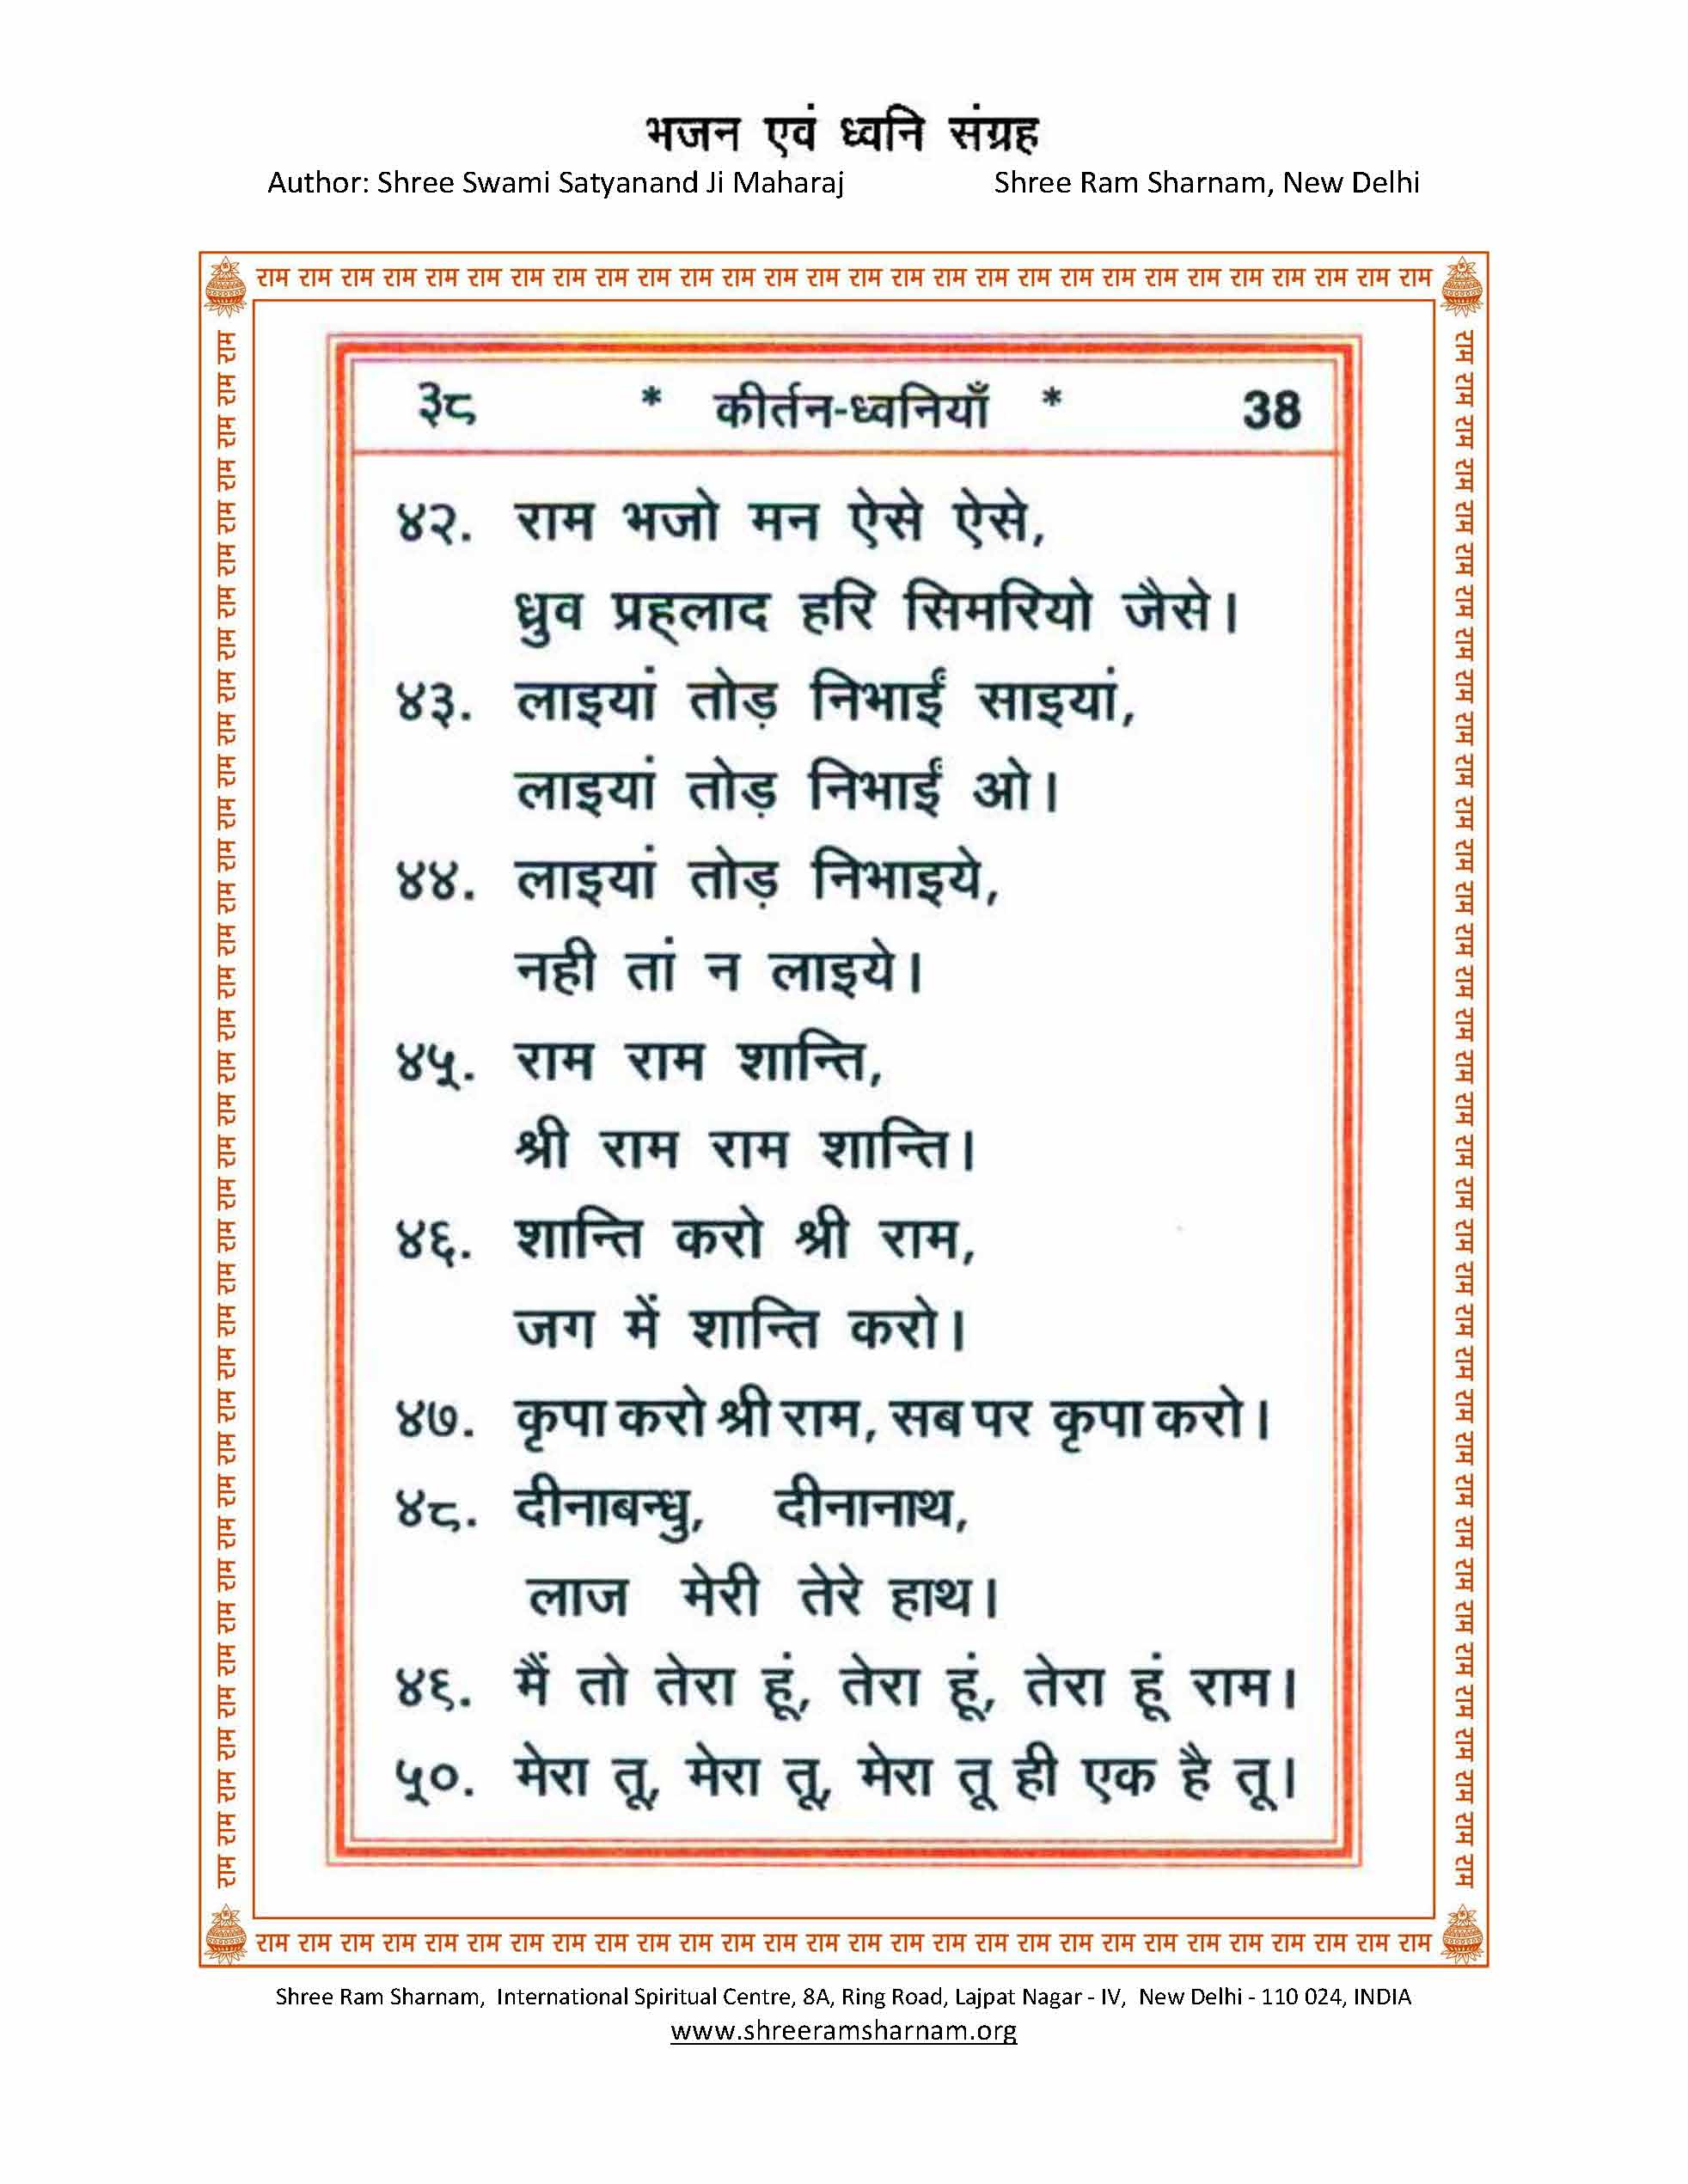 भजन एवं ध्वनि संग्रह
Author: Shree Swami Satyanand Ji Maharaj Shree Ram Sharnam, New Delhi
राम राम राम राम राम राम राम राम राम राम राम राम राम राम राम राम राम राम राम राम राम राम राम राम राम राम राम राम
राम राम राम राम राम राम राम राम राम राम राम राम राम राम राम राम राम राम राम राम राम राम राम राम राम राम राम राम राम राम राम राम राम राम राम राम राम
३८ * कीर्तन-ध्वनियाँ * 38
४२. राम भजो मन ऐसे ऐसे,
ध्रुव प्रह्लाद हरि सिमरियो जैसे।
४३. लाइयां तोड़ निभाईं साइयां,
लाइयां तोड़ निभाईं ओ।
४४. लाइयां तोड़ निभाइये,
नही तां न लाइये।
४५. राम राम शान्ति,
श्री राम राम शान्ति।
४६. शान्ति करो श्री राम,
जग में शान्ति करो।
४७. कृपा करो श्री राम, सब पर कृपा करो।
४८. दीनाबन्धु, दीनानाथ,
लाज मेरी तेरे हाथ।
४९. मैं तो तेरा हूं, तेरा हूं, तेरा हूं राम।
५०. मेरा तू, मेरा तू, मेरा तू ही एक है तू।
राम राम राम राम राम राम राम राम राम राम राम राम राम राम राम राम राम राम राम राम राम राम राम राम राम राम राम राम राम राम राम राम राम राम राम राम राम
राम राम राम राम राम राम राम राम राम राम राम राम राम राम राम राम राम राम राम राम राम राम राम राम राम राम राम राम
Shree Ram Sharnam, International Spiritual Centre, 8A, Ring Road, Lajpat Nagar - IV, New Delhi - 110 024, INDIA
www.shreeramsharnam.org